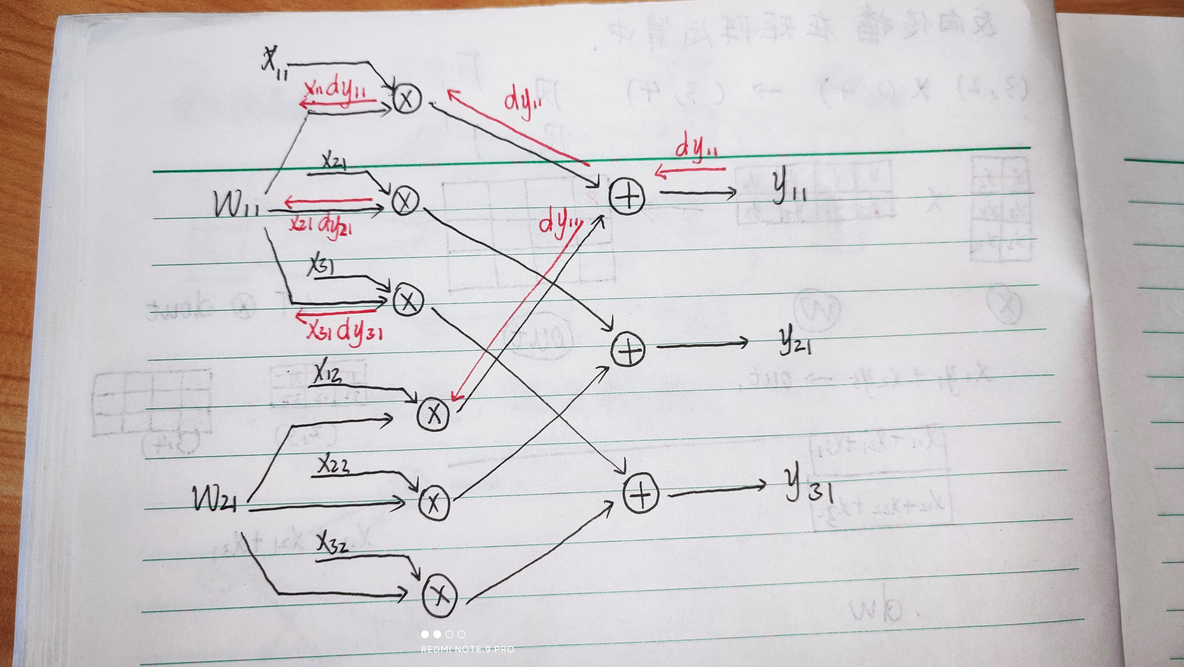 x₁₁
x₁₁dy₁₁
×
dy₁₁
dy₁₁
x₂₁
×
+
y₁₁
W₁₁
x₂₁dy₂₁
dy₁₁
x₃₁
×
x₃₁dy₃₁
+
y₂₁
x₁₂
×
x₂₂
W₂₁
×
+
y₃₁
x₃₂
×
REDMI NOTE 9 PRO